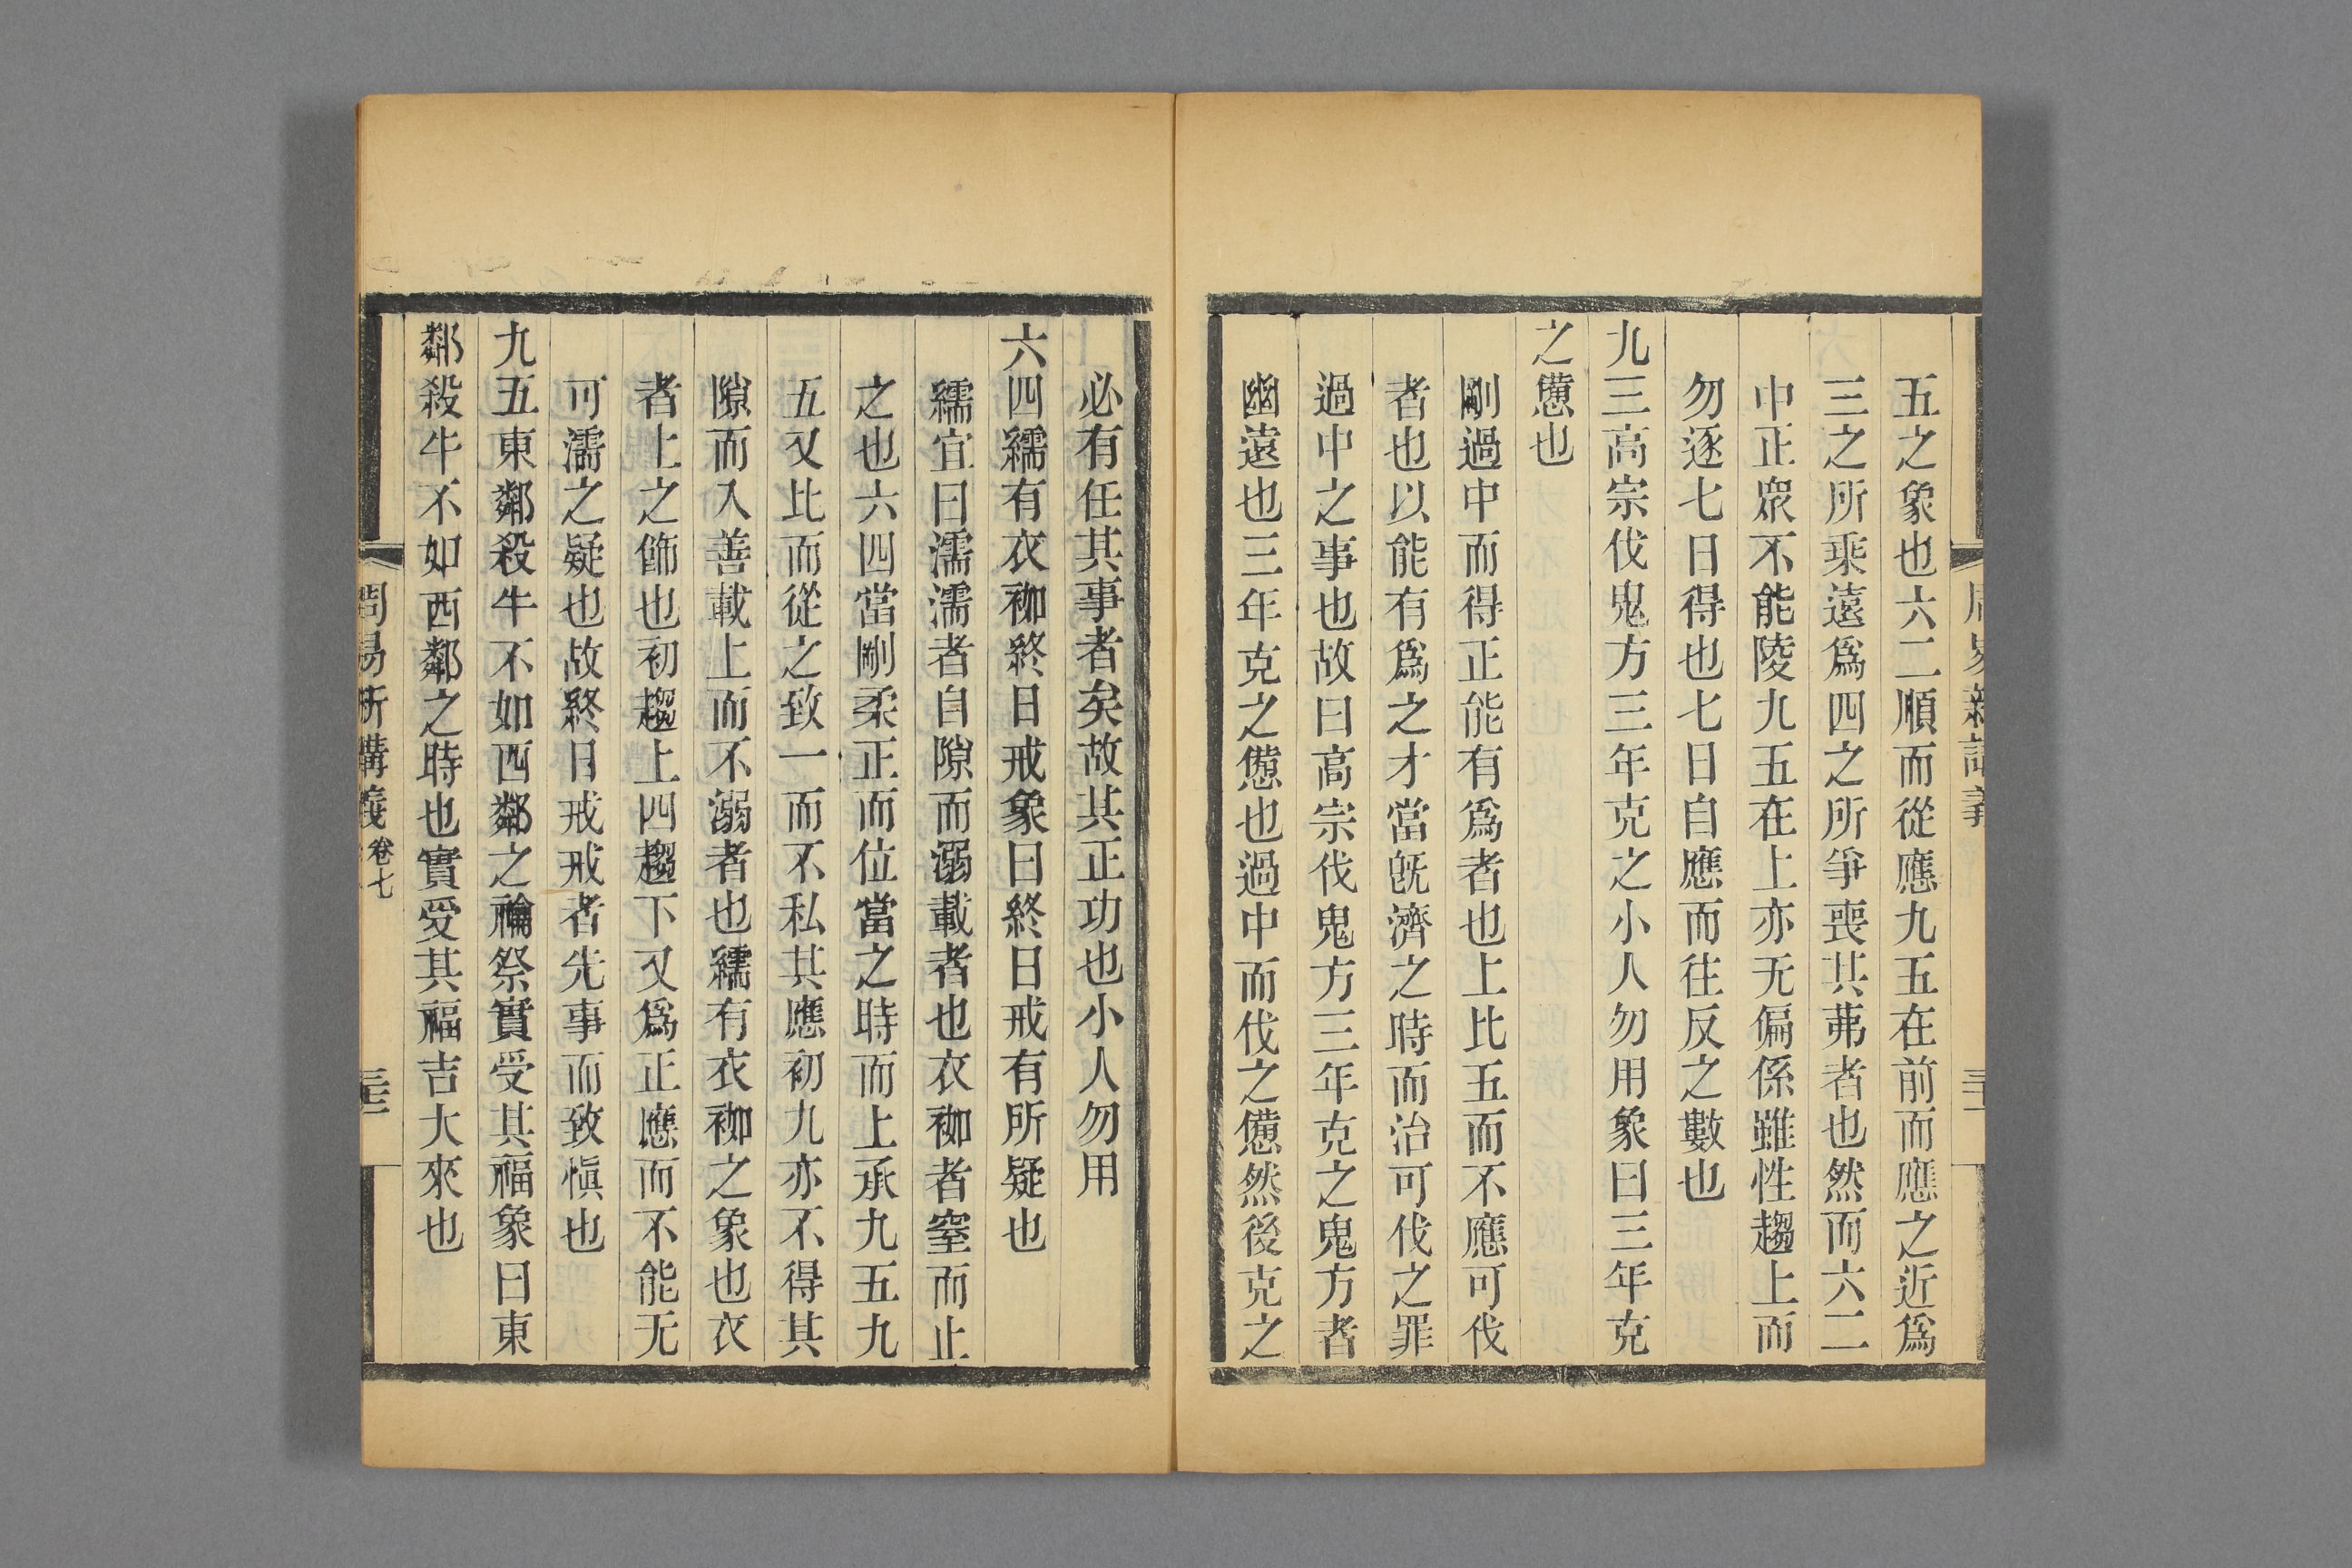 五之象也六二順而從應九五在前而應之近爲
三之所乘遠爲四之所爭喪其茀者也然而六二
中正衆不能陵九五在上亦无偏係雖性趨上而
勿逐七日得也七日自應而往反之數也
九三高宗伐鬼方三年克之小人勿用象曰三年克
之憊也
剛過中而得正能有爲者也上比五而不應可伐
者也以能有爲之才當旣濟之時而治可伐之罪
過中之事也故曰高宗伐鬼方三年克之鬼方者
幽遠也三年克之憊也過中而伐之憊然後克之
必有任其事者矣故其正功也小人勿用
六四繻有衣袽終日戒象曰終日戒有所疑也
繻宜曰濡濡者自隙而溺載者也衣袽者窒而止
之也六四當剛柔正而位當之時而上承九五九
五又比而從之致一而不私其應初九亦不得其
隙而入善載上而不溺者也繻有衣袽之象也衣
者上之飾也初趨上四趨下又爲正應而不能无
可濡之疑也故終日戒戒者先事而致愼也
九五東鄰殺牛不如西鄰之禴祭實受其福象曰東
鄰殺牛不如西鄰之時也實受其福吉大來也
周易新講義 卷七